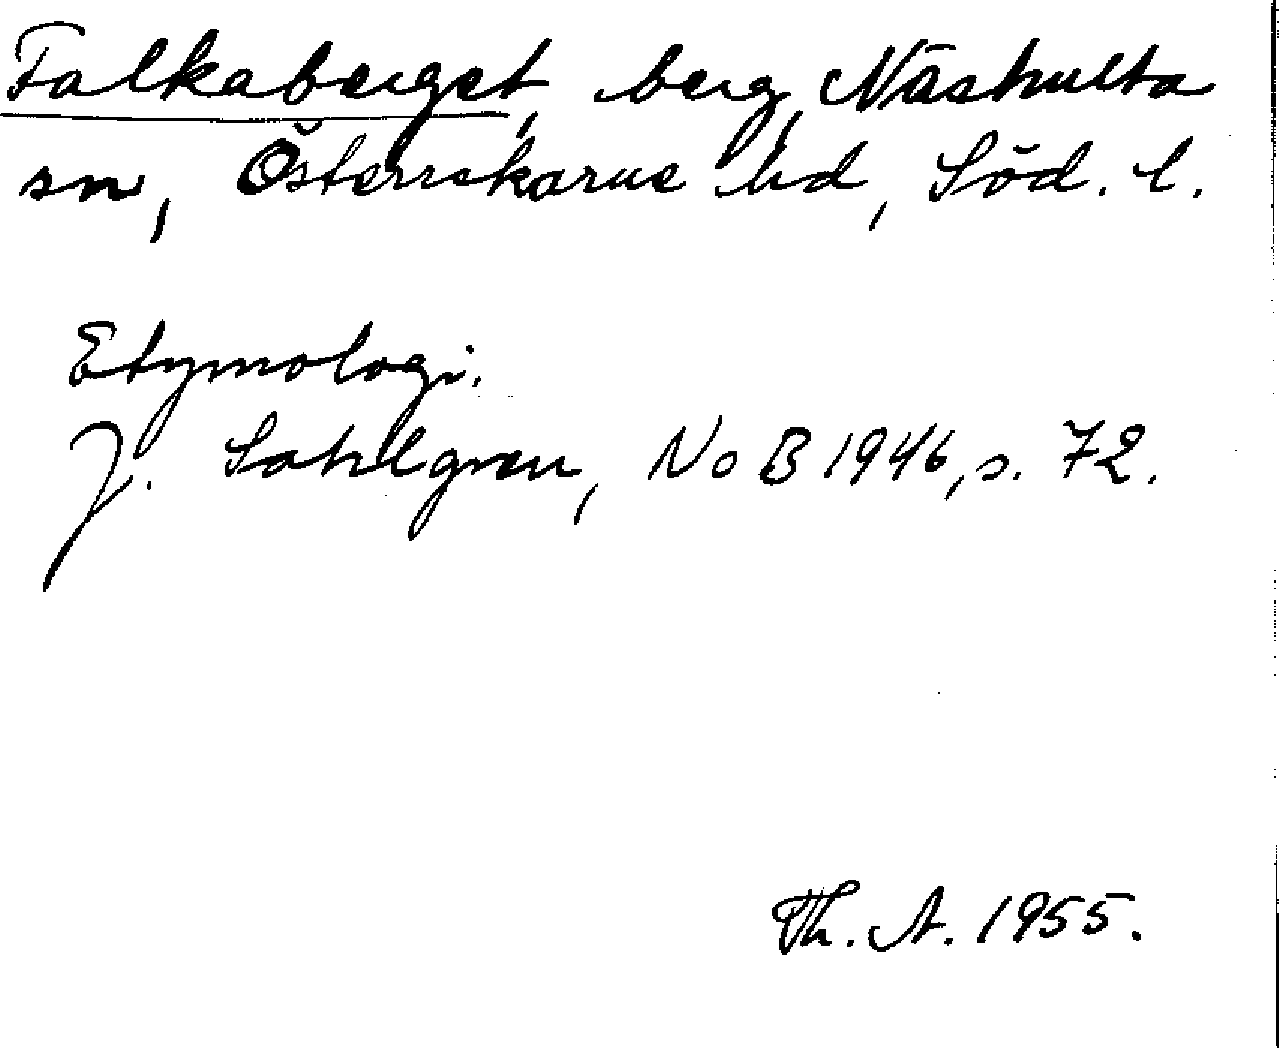 Falkaberget, berg, Näshulta
sn, Österrekarne hd, Söd. l.
Etymologi.
J. Sahlgren, NoB 1946, s. 72.
Th. A. 1955.